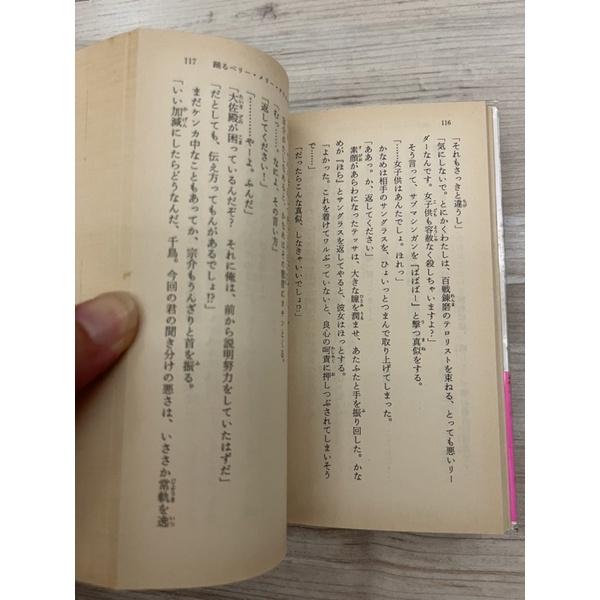 116
「それもさっきと違うし」
「気にしないで。とにかくわたしは、百戦錬磨のテロリストを束ねる、とっても悪いリー
ダーなんです。女子供も容赦なく殺しちゃいますよ?」
そう言って、サブマシンガンを『ばばばー』と撃つ真似をする。
「……女子供はあんたでしょ。ほれっ」
かなめは相手のサングラスを、ひょいっとつまんで取り上げてしまった。
「ああっ。か、返してください」
素顔があらわになったテッサは、大きな瞳を潤ませ、あたふたと手を振り回した。かな
めが『ほら』とサングラスを返してやると、彼女はほっとする。
「よかった。これを着けてワルぶっていないと、良心の呵責に押しつぶされてしまいそう
で……」
「だったらこんな真似、しなきゃいいでしょ!?」
117 踊るベリー・メリー・
「返してください!」
「むっ……。なによ、その言い方」
「……やーよ。ふんだ」
「大佐殿が困っているんだぞ? それに俺は、前から説明努力をしていたはずだ」
「だとしても、伝え方ってもんがあるでしょ!?」
まだケンカ中なこともあってか、宗介もうんざりと首を振る。
「いい加減にしたらどうなんだ、千鳥。今回の君の聞き分けの悪さは、いささか常軌を逸